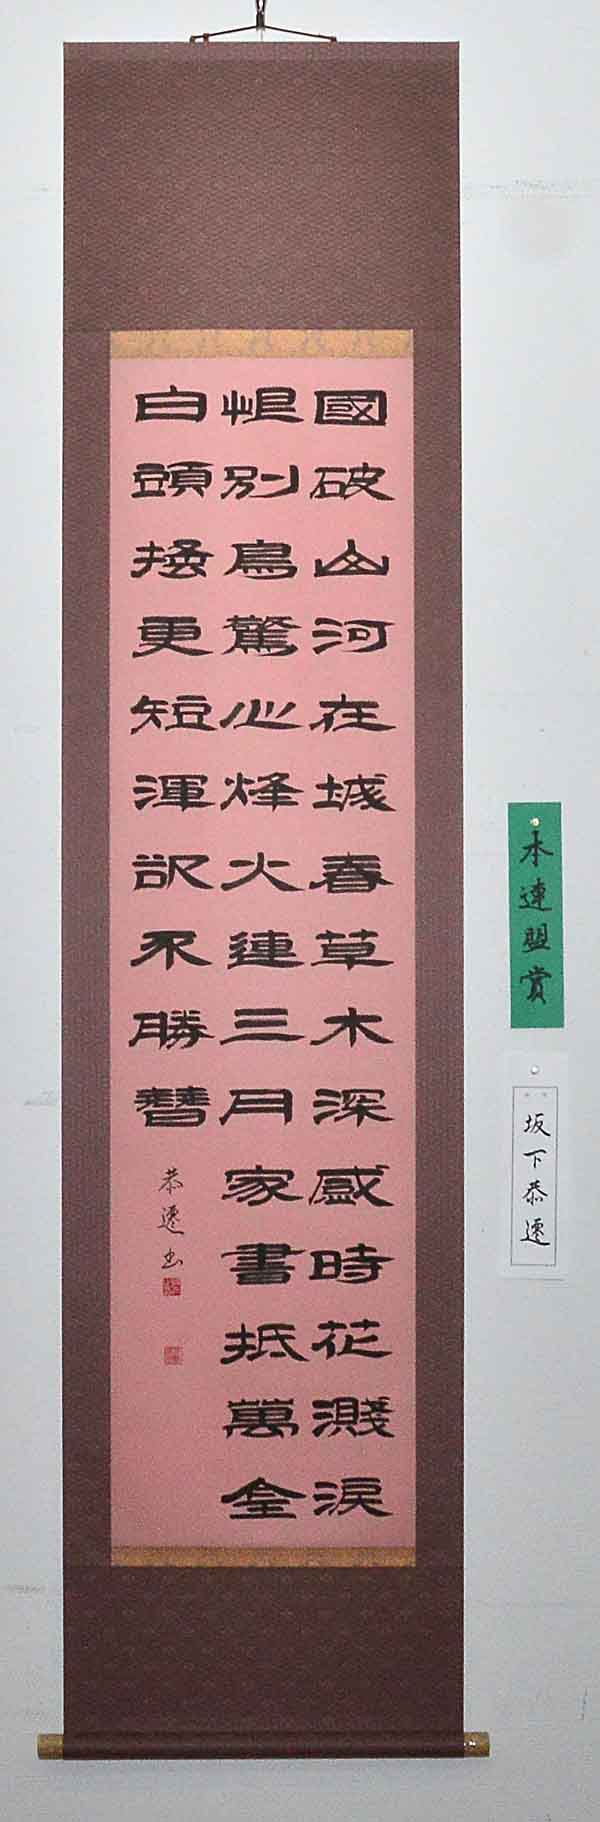 國破山河在城春草木深感時花濺淚
恨別鳥驚心烽火連三月家書抵萬金
白頭搔更短渾欲不勝簪
恭遷書
本連盟賞
坂下恭遷